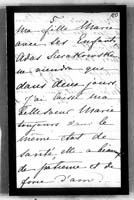 Ma fille Marie
avec ses Enfants,
Adas Sierakowski
ne viendra que
dans deux jours.
J'ai laissé ma
belle soeur Marie
toujours dans le
même état de
santé, elle a beaucoup
de patience et de
force d'âme